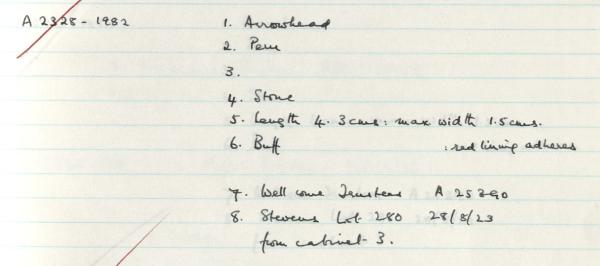 A 2328-1982 1. Arrowhead
2. Peru
3.
4. Stone
5. Length 4.3cms: max width 1.5cms.
6. Buff :red lining adheres
7. Wellcome Trustees A 25390
8. Stevens Lot 280 28/8/23
from cabinet 3.